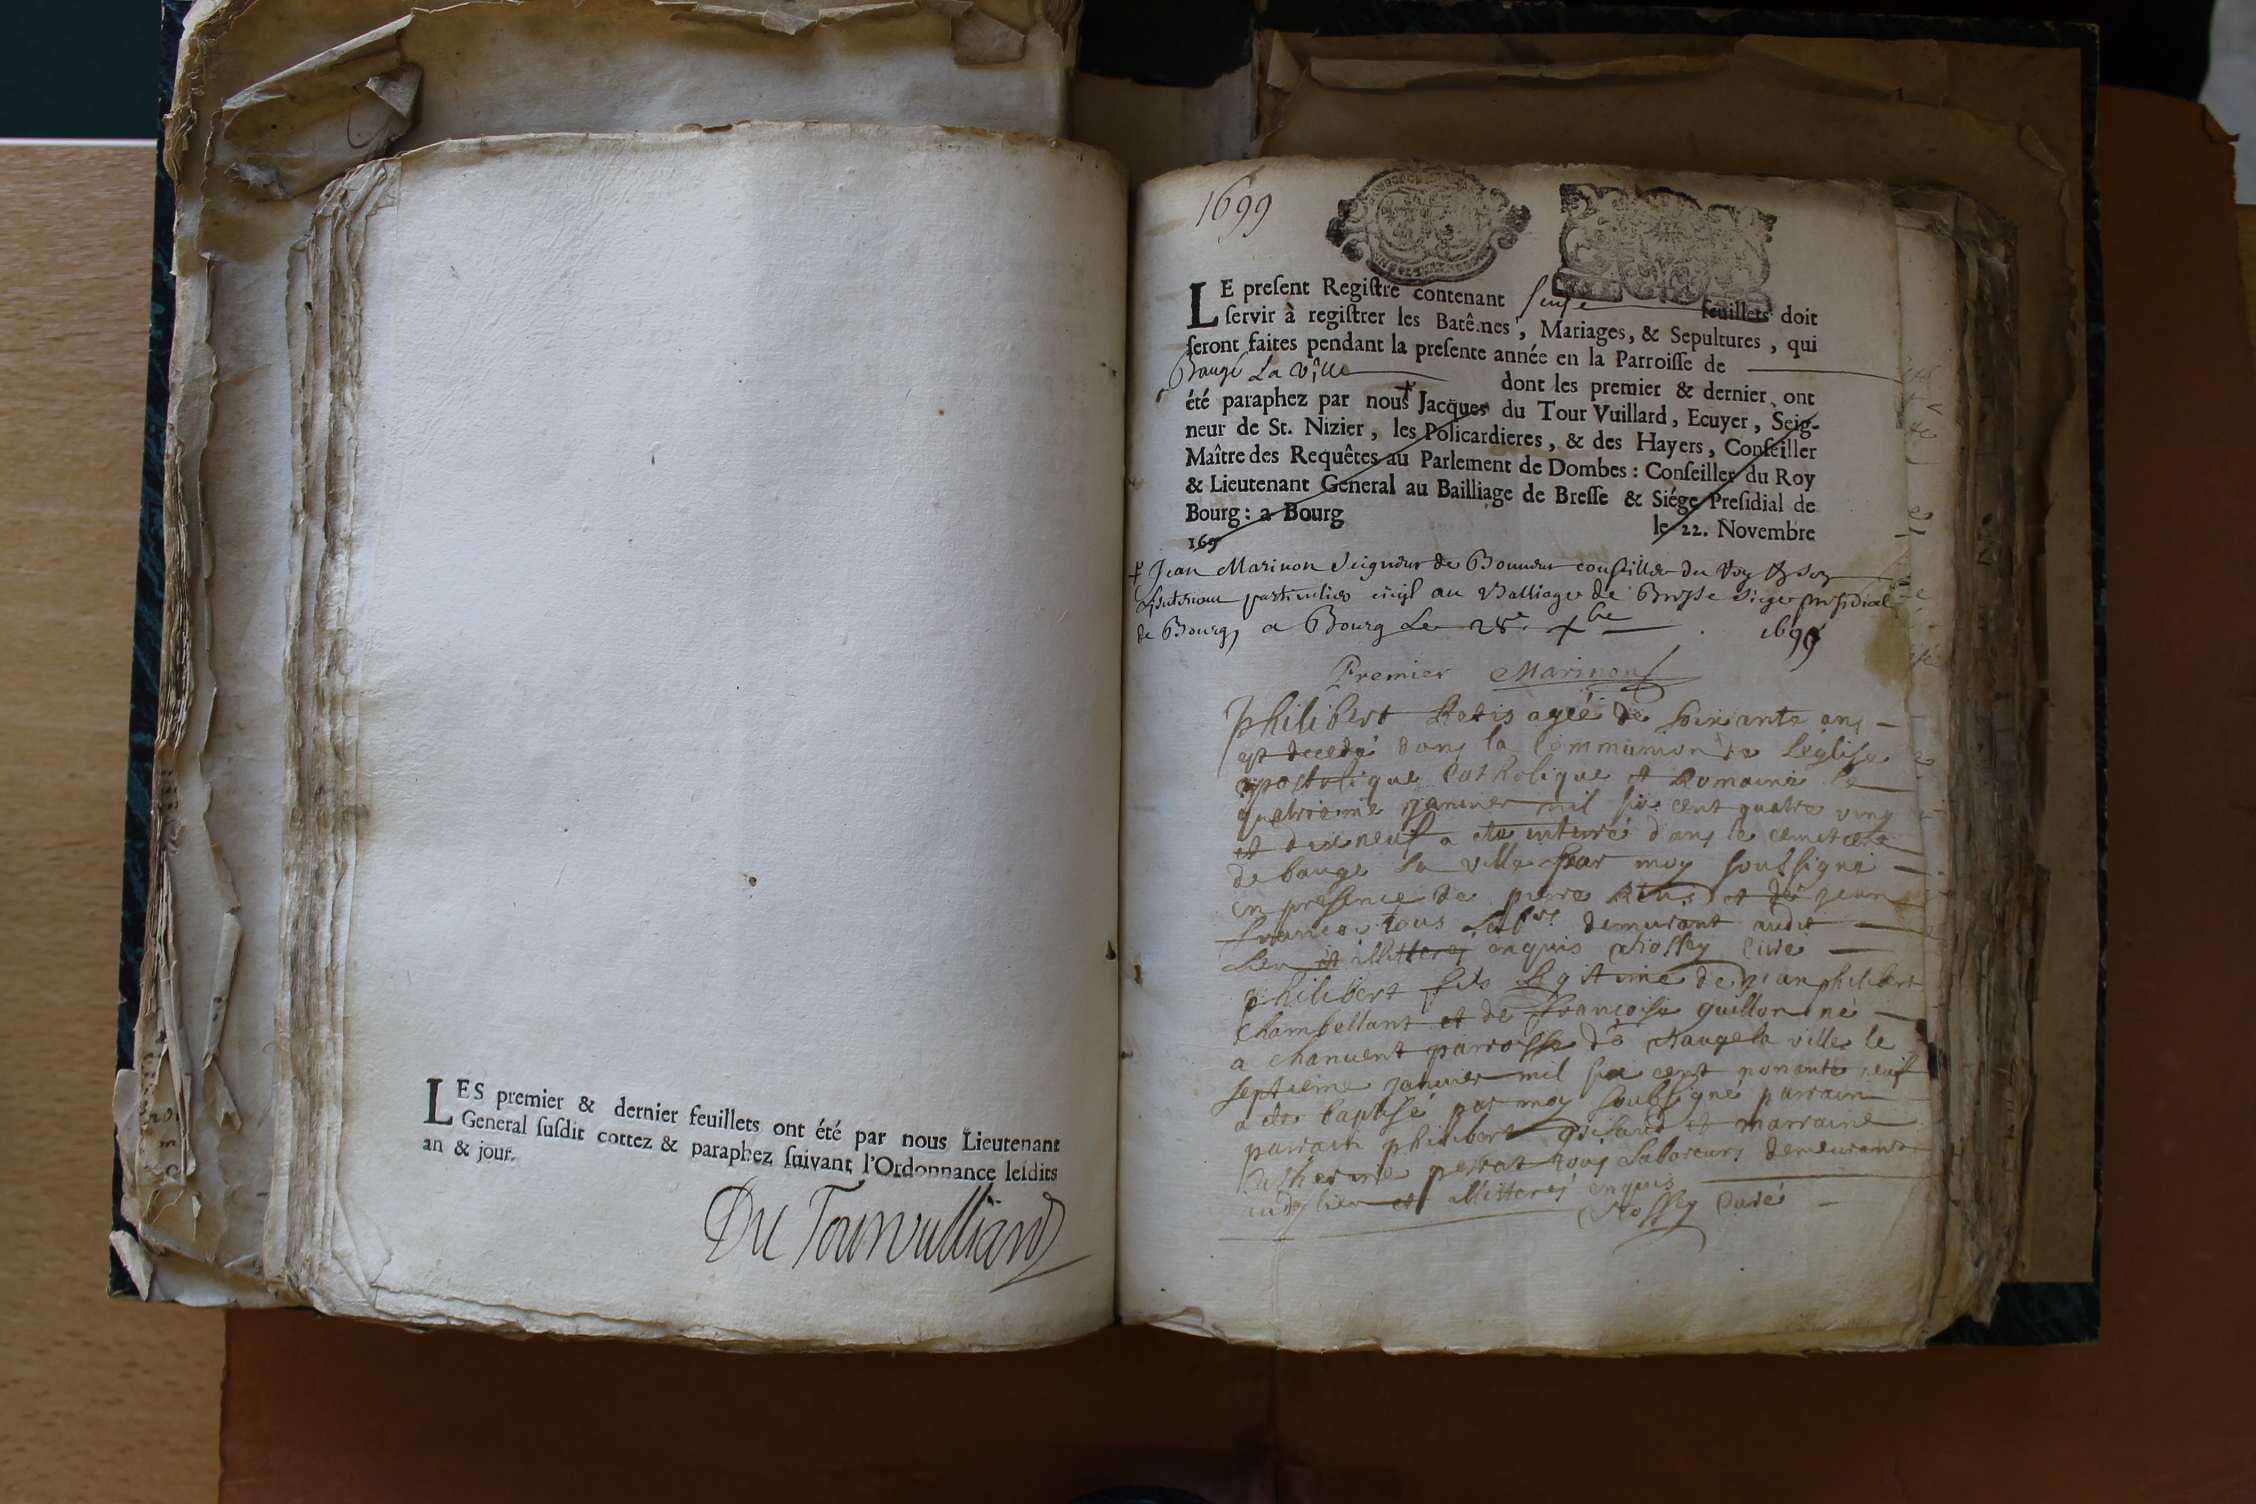 LES premier & dernier feuillets ont été par nous Lieutenant
General ſuſdit cottez & paraphez ſuivant l'Ordonnance leſdits
an & jour.
Du Tourvulliard
1699
LE preſent Regiſtre contenant feuillets doit
ſervir à regiſtrer les Batêmes, Mariages, & Sepultures, qui
ſeront faites pendant la preſente année en la Parroiſſe de
Baugé La Ville dont les premier & dernier ont
été paraphez par nous Jacques du Tour Vuillard, Ecuyer, Seig-
neur de St. Nizier, les Policardieres, & des Hayers, Conſeiller
Maître des Requêtes au Parlement de Dombes: Conſeiller du Roy
& Lieutenant General au Bailliage de Breſſe & Siége Preſidial de
Bourg: a Bourg le 22. Novembre
169
Jean Marinon Seigneur de conseiller du Roy
particulier au Balliage de Bresse siege presidial
de Bourg, a Bourg Le 28e xbe 1699
Premier Marinon
Philibert agée de soixante ans
est decedé dans la Communion de Léglise
apostolique Catholique et Romaine le
quatrieme janvier mil six cent quatre ving
et dix neuf a ete enterré dans le cemetere
de bauge la ville par moy soussigné
en presence de pierre et de jean
francois tous demurant audit
lieu et illitteres enquis curé
philibert fils legitime de jean philibert
Chambellant et de françoise guillon né
a chanvent parroisse de Bauge la ville le
septieme janvier mil six cent nonante neuf
a ete baptisé par moy soubsigné parrain
parrain philibert et marraine
Catherine perrat tous laboreurs demeurant
audt lieu et illitteres enquis
Curé